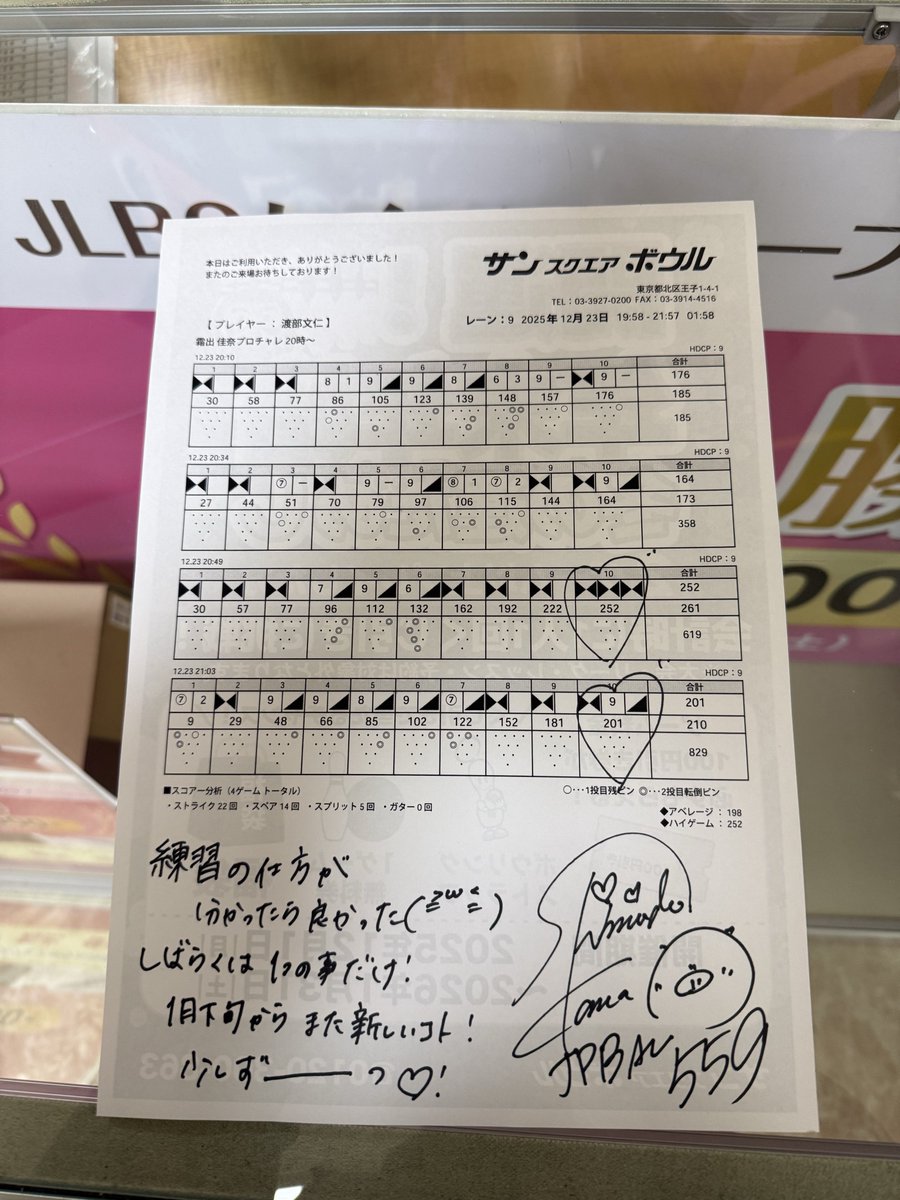 JLBC
本日はご利用いただき、ありがとうございました！
またのご来場お待ちしております！
サン スクエア ボウル
東京都北区王子1-4-1
TEL：03-3927-0200 FAX：03-3914-4516
【 プレイヤー ： 渡部文仁 】
レーン：9 2025年 12月 23日 19:58 - 21:57 01:58
霜出 佳奈プロチャレ 20時～
12.23 20:10 HDCP：9
1 2 3 4 5 6 7 8 9 10 合計
8 1 9 9 8 6 3 9 － 9 － 176
30 58 77 86 105 123 139 148 157 176 185
185
12.23 20:34 HDCP：9
1 2 3 4 5 6 7 8 9 10 合計
⑦ － 9 － 9 ⑧ 1 ⑦ 2 9 164
27 44 51 70 79 97 106 115 144 164 173
358
12.23 20:49 HDCP：9
1 2 3 4 5 6 7 8 9 10 合計
7 9 6 252
30 57 77 96 112 132 162 192 222 252 261
619
12.23 21:03 HDCP：9
1 2 3 4 5 6 7 8 9 10 合計
⑦ 2 9 9 8 9 ⑦ 9 201
9 29 48 66 85 102 122 152 181 201 210
829
■スコアー分析（4ゲーム トータル） ○･･･1投目残ピン ◎･･･2投目転倒ピン
・ストライク 22 回 ・スペア 14 回 ・スプリット 5 回 ・ガター 0 回
◆アベレージ ：198
◆ハイゲーム ：252
練習の仕方が
分かったら良かった(=ω=)
しばらくは 1つの事だけ!
1月下旬から また新しいコト!
少しずーーーつ♡!
Shimode
Kana
JPBA 559